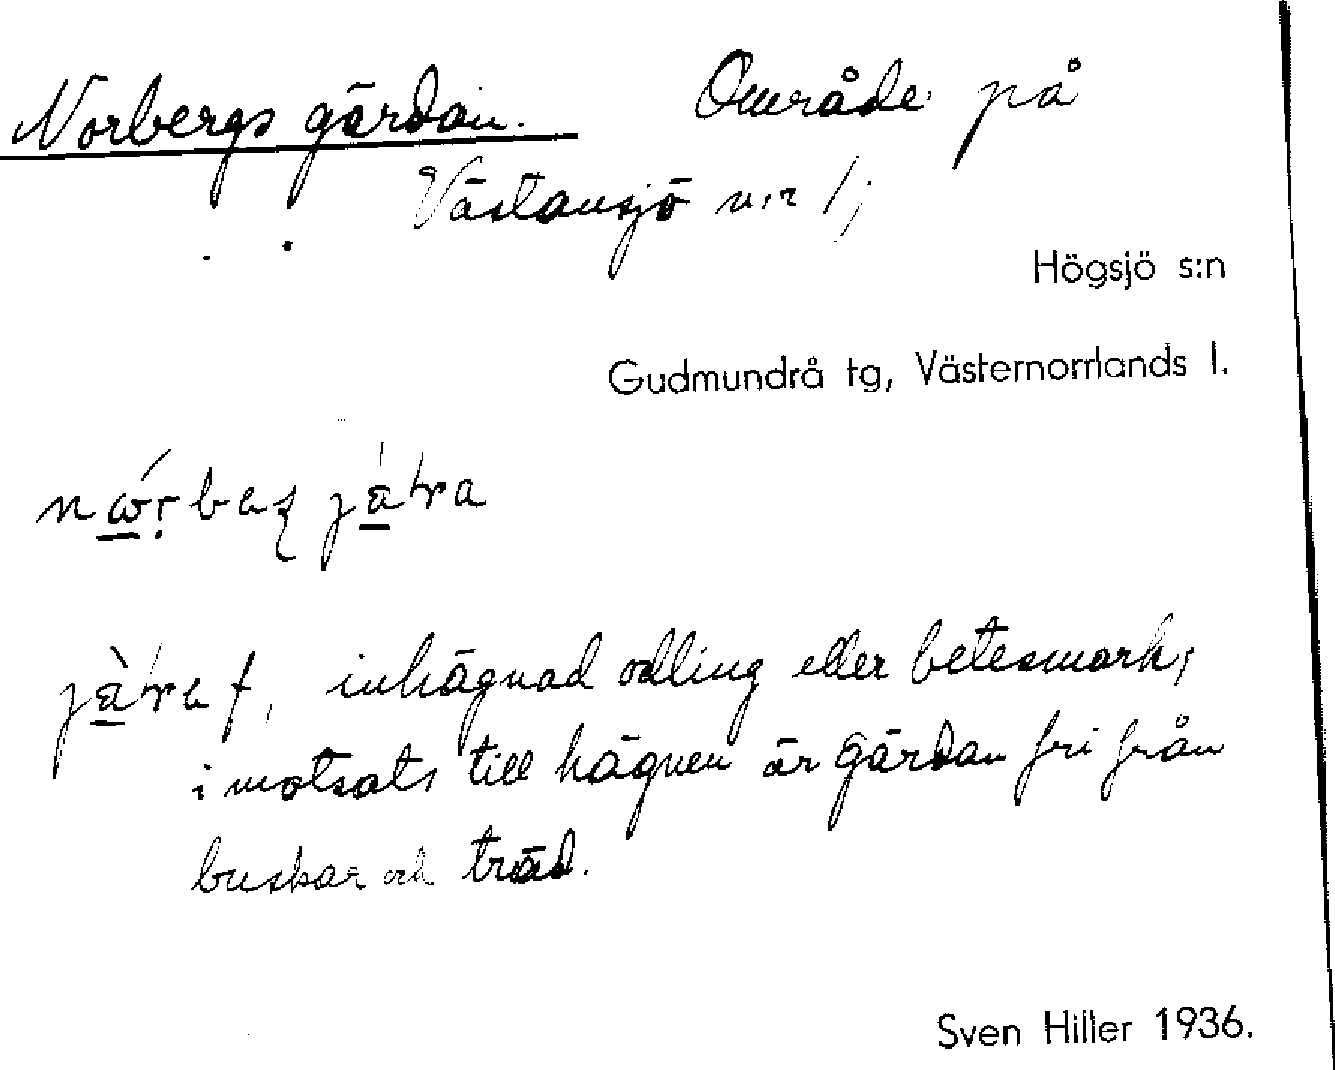 Norbergs gärdan. Område på
Västansjö n:r 1;
Högsjö s:n
Gudmundrå tg, Västernorrlands l.
f, inhägnad odling eller betesmark;
i motsats till hägnen är gärdan fri från
buskar och träd.
Sven Hiller 1936.